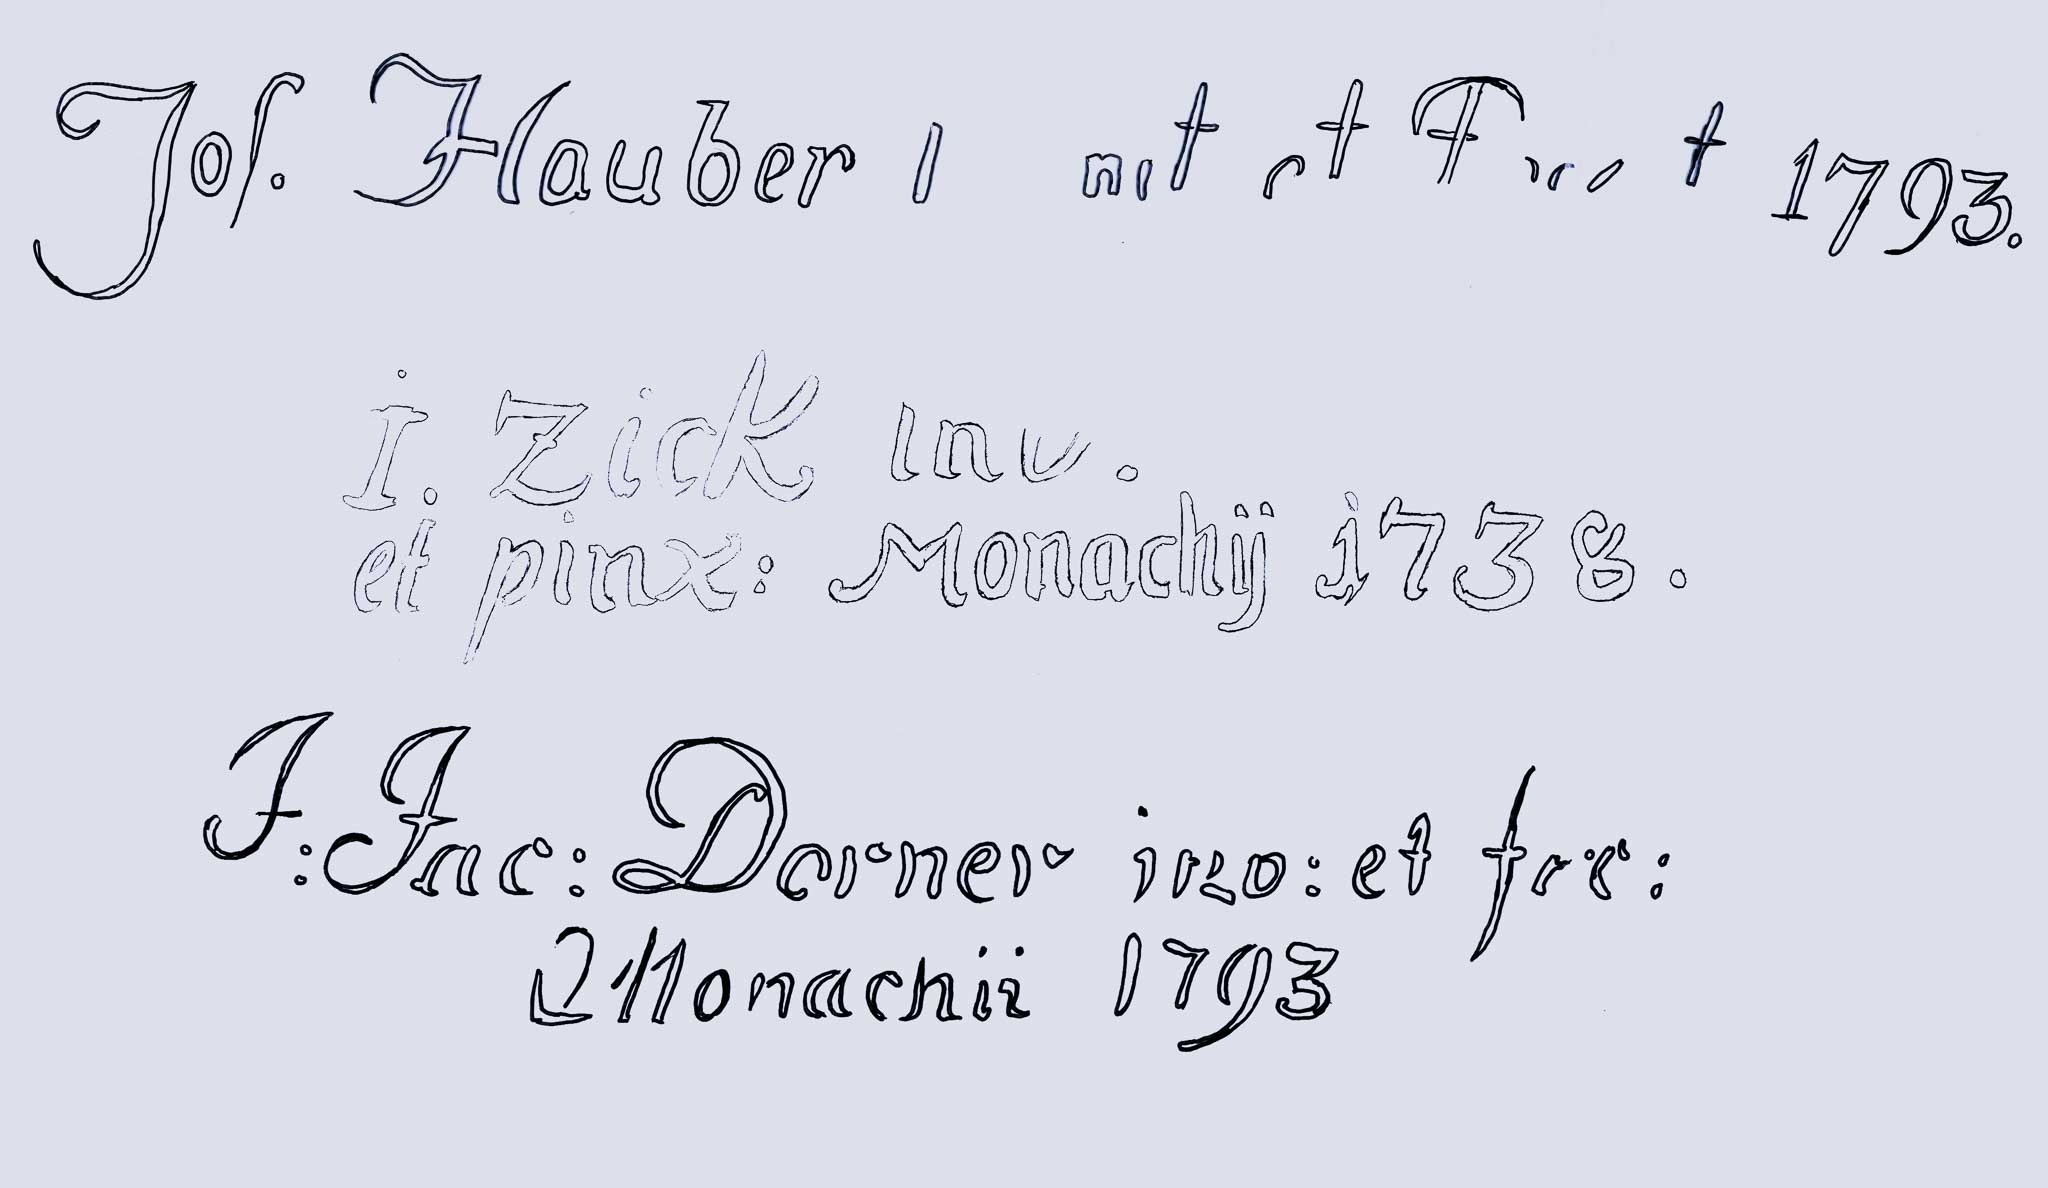 Jos. Hauber et 1793.
I. Zick inv.
et pinx: Monachij 1738.
J: Jac: Dorner inv: et fec:
Monachii 1793